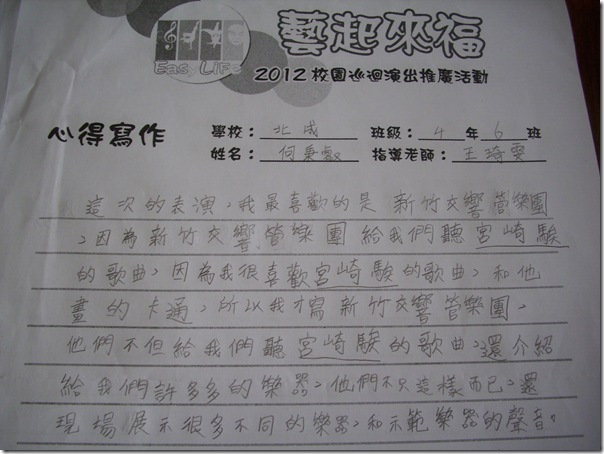 Easy Life
藝起來福
2012校園巡迴演出推廣活動
心得寫作
學校：北成 班級：4年6班
姓名：何秉叡 指導老師：王琦雯
這次的表演，我最喜歡的是新竹交響管樂團
，因為新竹交響管樂團給我們聽宮崎駿
的歌曲，因為我很喜歡宮崎駿的歌曲，和他
畫的卡通，所以我才寫新竹交響管樂團。
他們不但給我們聽宮崎駿的歌曲，還介紹
給我們許多多的樂器，他們不只這樣而已，還
現場展示很多不同的樂器，和示範樂器的聲音。